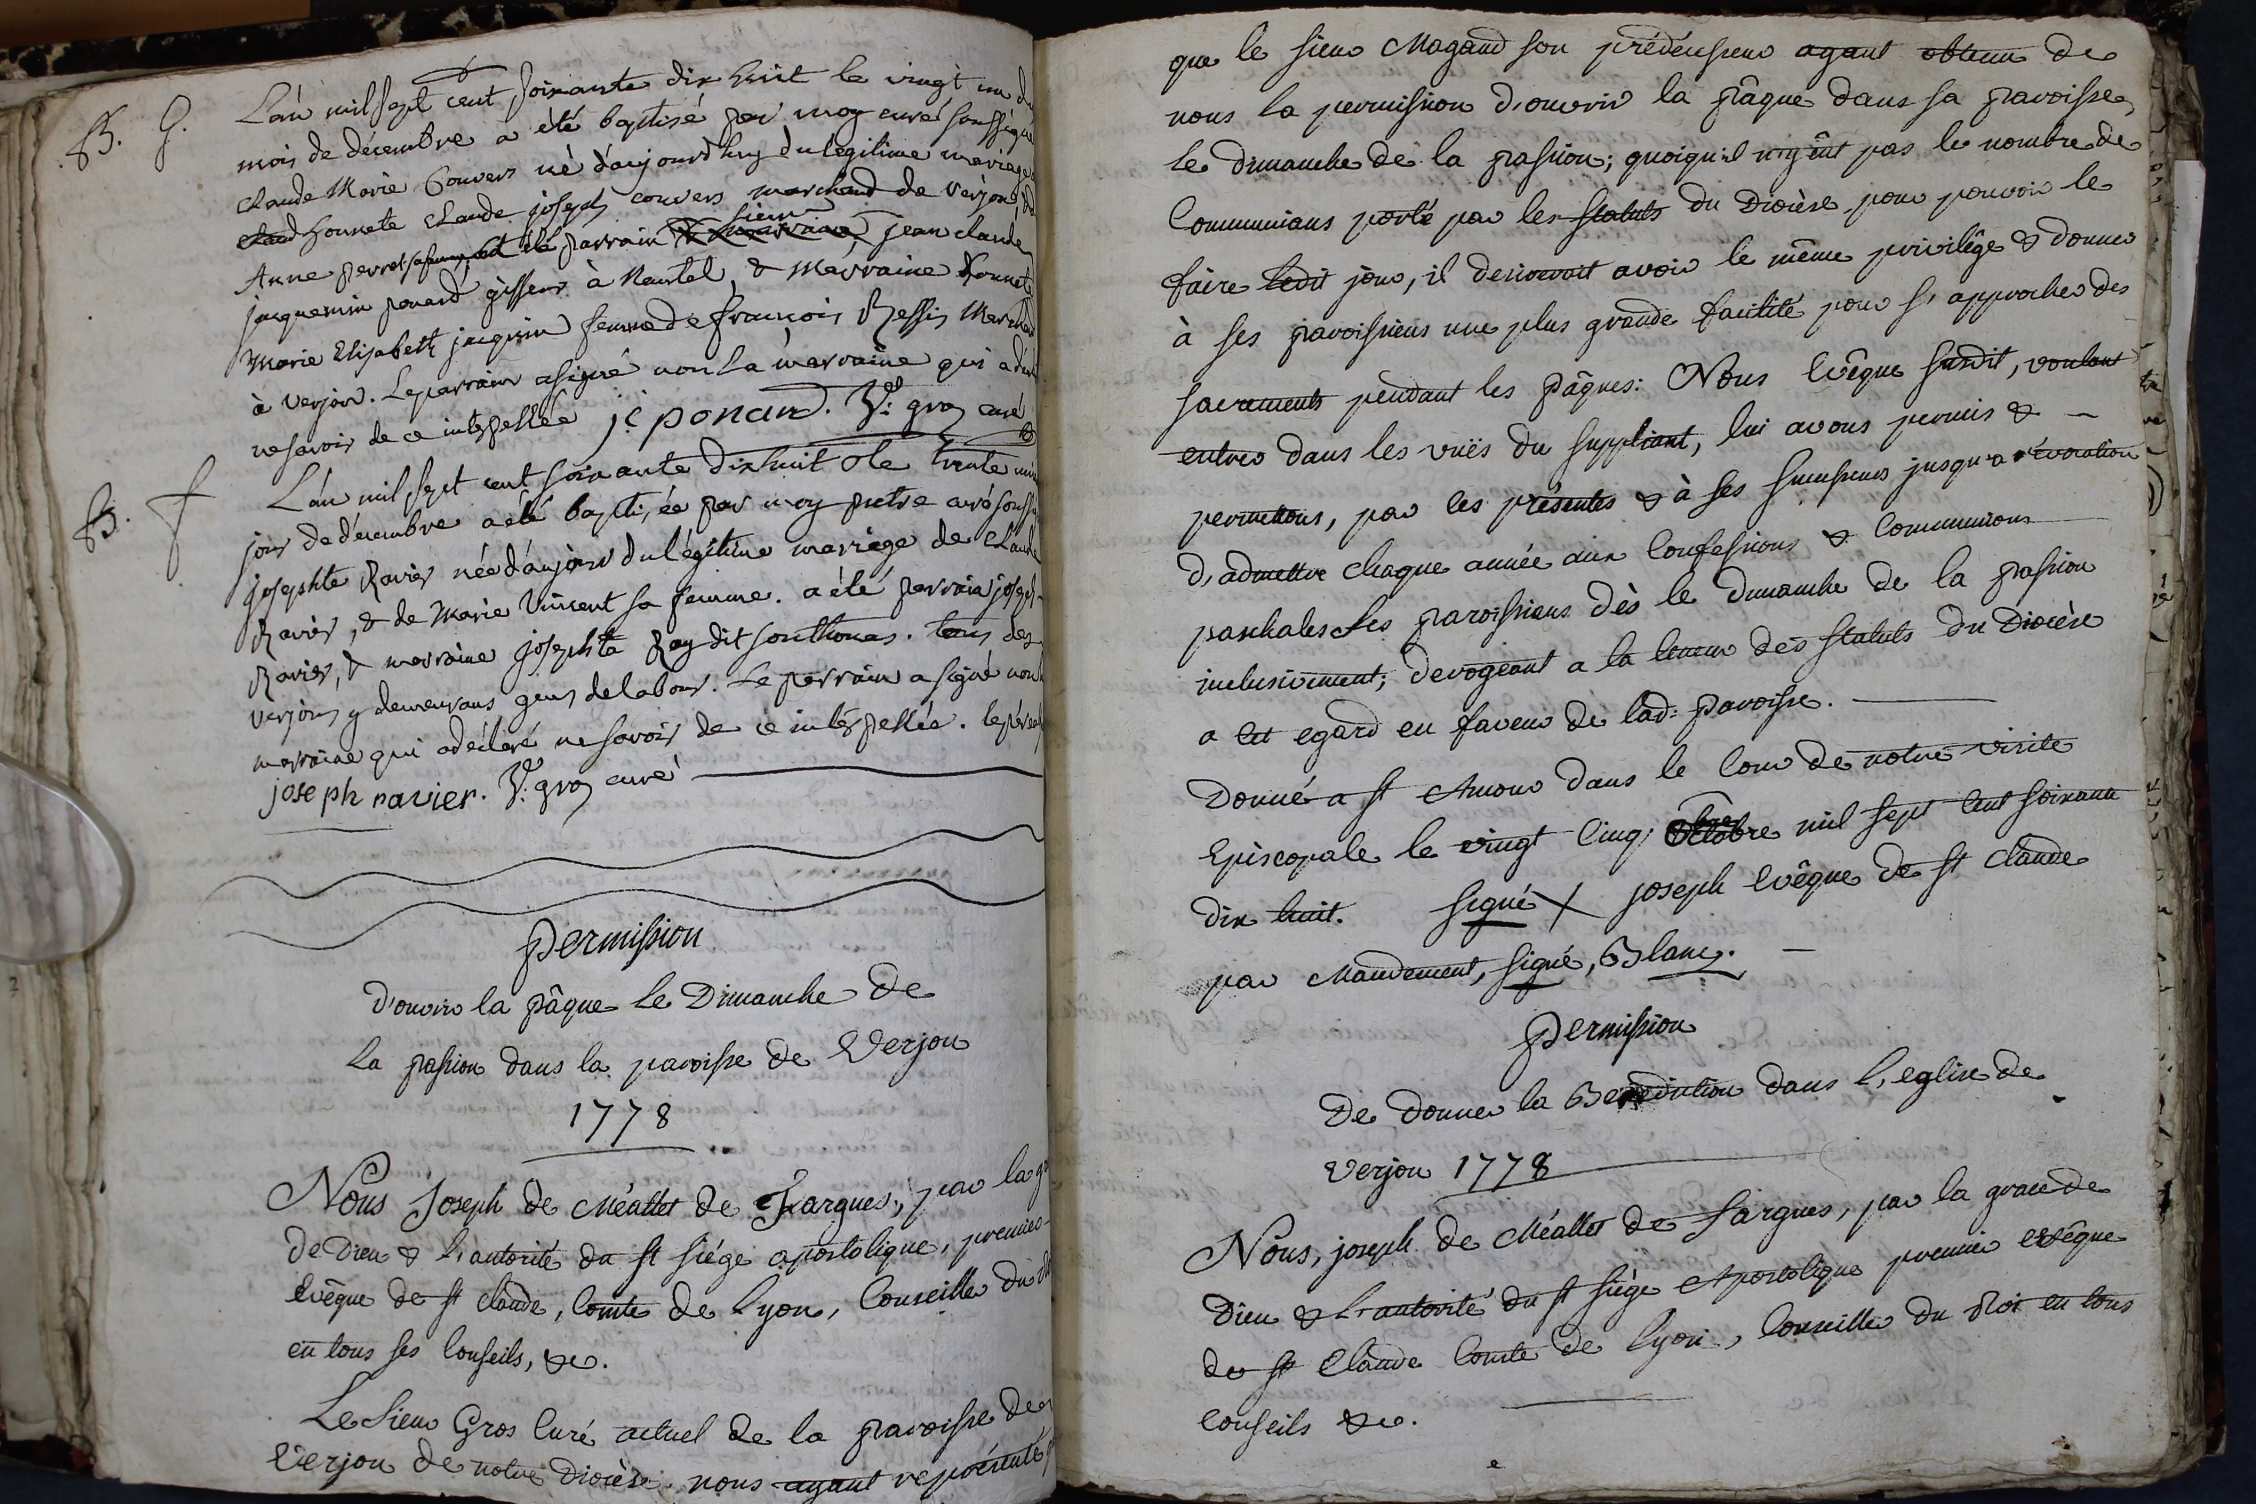 B. G. L'an mil sept cent soixante dix huit le vingt un du
mois de décembre a été baptisé par moy curé soussigné
claude Marie Convers né d'aujourd'huy du légitime mariage de
honnete claude joseph convers marchand de verjon &
Anne perret sa femme, a été parrain sieur jean claude
jacquemin ponard gisseur à Nantel, & Marraine honnete
Marie Elisabeth jacquin femme de francois Ressis Marchand
à verjon. Le parrain a signé non la marraine qui a déclaré
ne savoir de ce interpellée jc ponard. V: gros curé
B. f L'an mil sept cent soixante dix huit le trente un
jour de décembre a été baptisée par moy pretre curé soussigné
josephte Ravier née d'aujourd du légitime mariage de claude
Ravier, & de Marie Vincent sa femme. a été parrain joseph
Ravier, & marraine josephte Ray dit sonthonas. tous de
verjon y demeurans gens de labour. Le parrain a signé non la
marraine qui a déclaré ne savoir de ce interpellée. le père
joseph ravier. V: gros curé
permission
d'ouvrir la pâque le Dimanche de
La passion dans la paroisse de Verjon
1778
Nous Joseph de Méallet de Fargues, par la
de Dieu & l'autorité du st siége apostolique, premier
Evêque de st claude, Comte de Lyon, Conseiller du
en tous ses Conseils, &c.
Le Sieur Gros Curé actuel de la paroisse de
Verjon de notre Diocèse, nous ayant représenté
que le sieur Magaud son prédécesseur ayant obtenu de
nous la permission d'ouvrir la pâque dans sa paroisse,
le dimanche de la passion; quoiqu'il n'y eût pas le nombre de
Communians porté par les statuts du Diocèse pour pouvoir le
faire ledit jour, il desireroit avoir le même privilège & donner
à ses paroissiens une plus grande facilité pour s'approcher des
sacrements pendant les Pâques: Nous Evêque susdit, voulant
entrer dans les vuës du suppliant, lui avons permis &
permettons, par les présentes & à ses successeurs jusqu'a révocation
d'admettre chaque année aux Confessions & Communions
paschales les paroissiens dès le dimanche de la passion
inclusivement; derogeant a la teneur des statuts du Diocèse
a cet egard en faveur de lad: paroisse.
Donné a st Amour dans le Cour de notre visite
Episcopale le vingt Cinq octobre mil sept cent soixante
dix huit. signé + joseph Evêque de st claude
par Mandement, signé, Blanc.
permission
De donner la Benediction dans l'eglise de
Verjon 1778
Nous, joseph de Méallet de fargues, par la grace de
Dieu & l'autorité du st siége Apostolique premier evêque
de st Claude Comte de Lyon, Conseiller du Roi en tous
conseils &c.